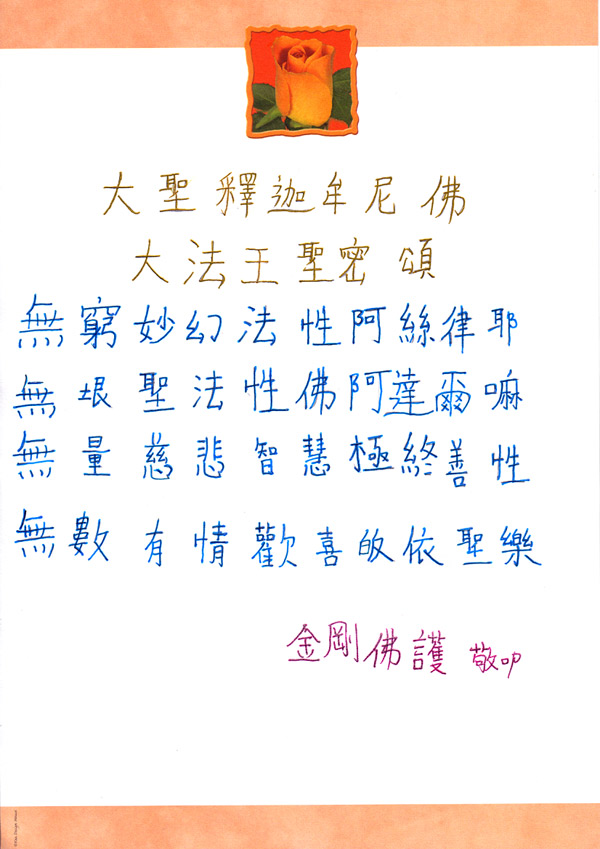 大聖釋迦牟尼佛
大法王聖密頌
無窮妙幻法性阿絲律耶
無垠聖法性佛阿達爾嘛
無量慈悲智慧極終善性
無數有情歡喜皈依聖樂
金剛佛護 敬叩